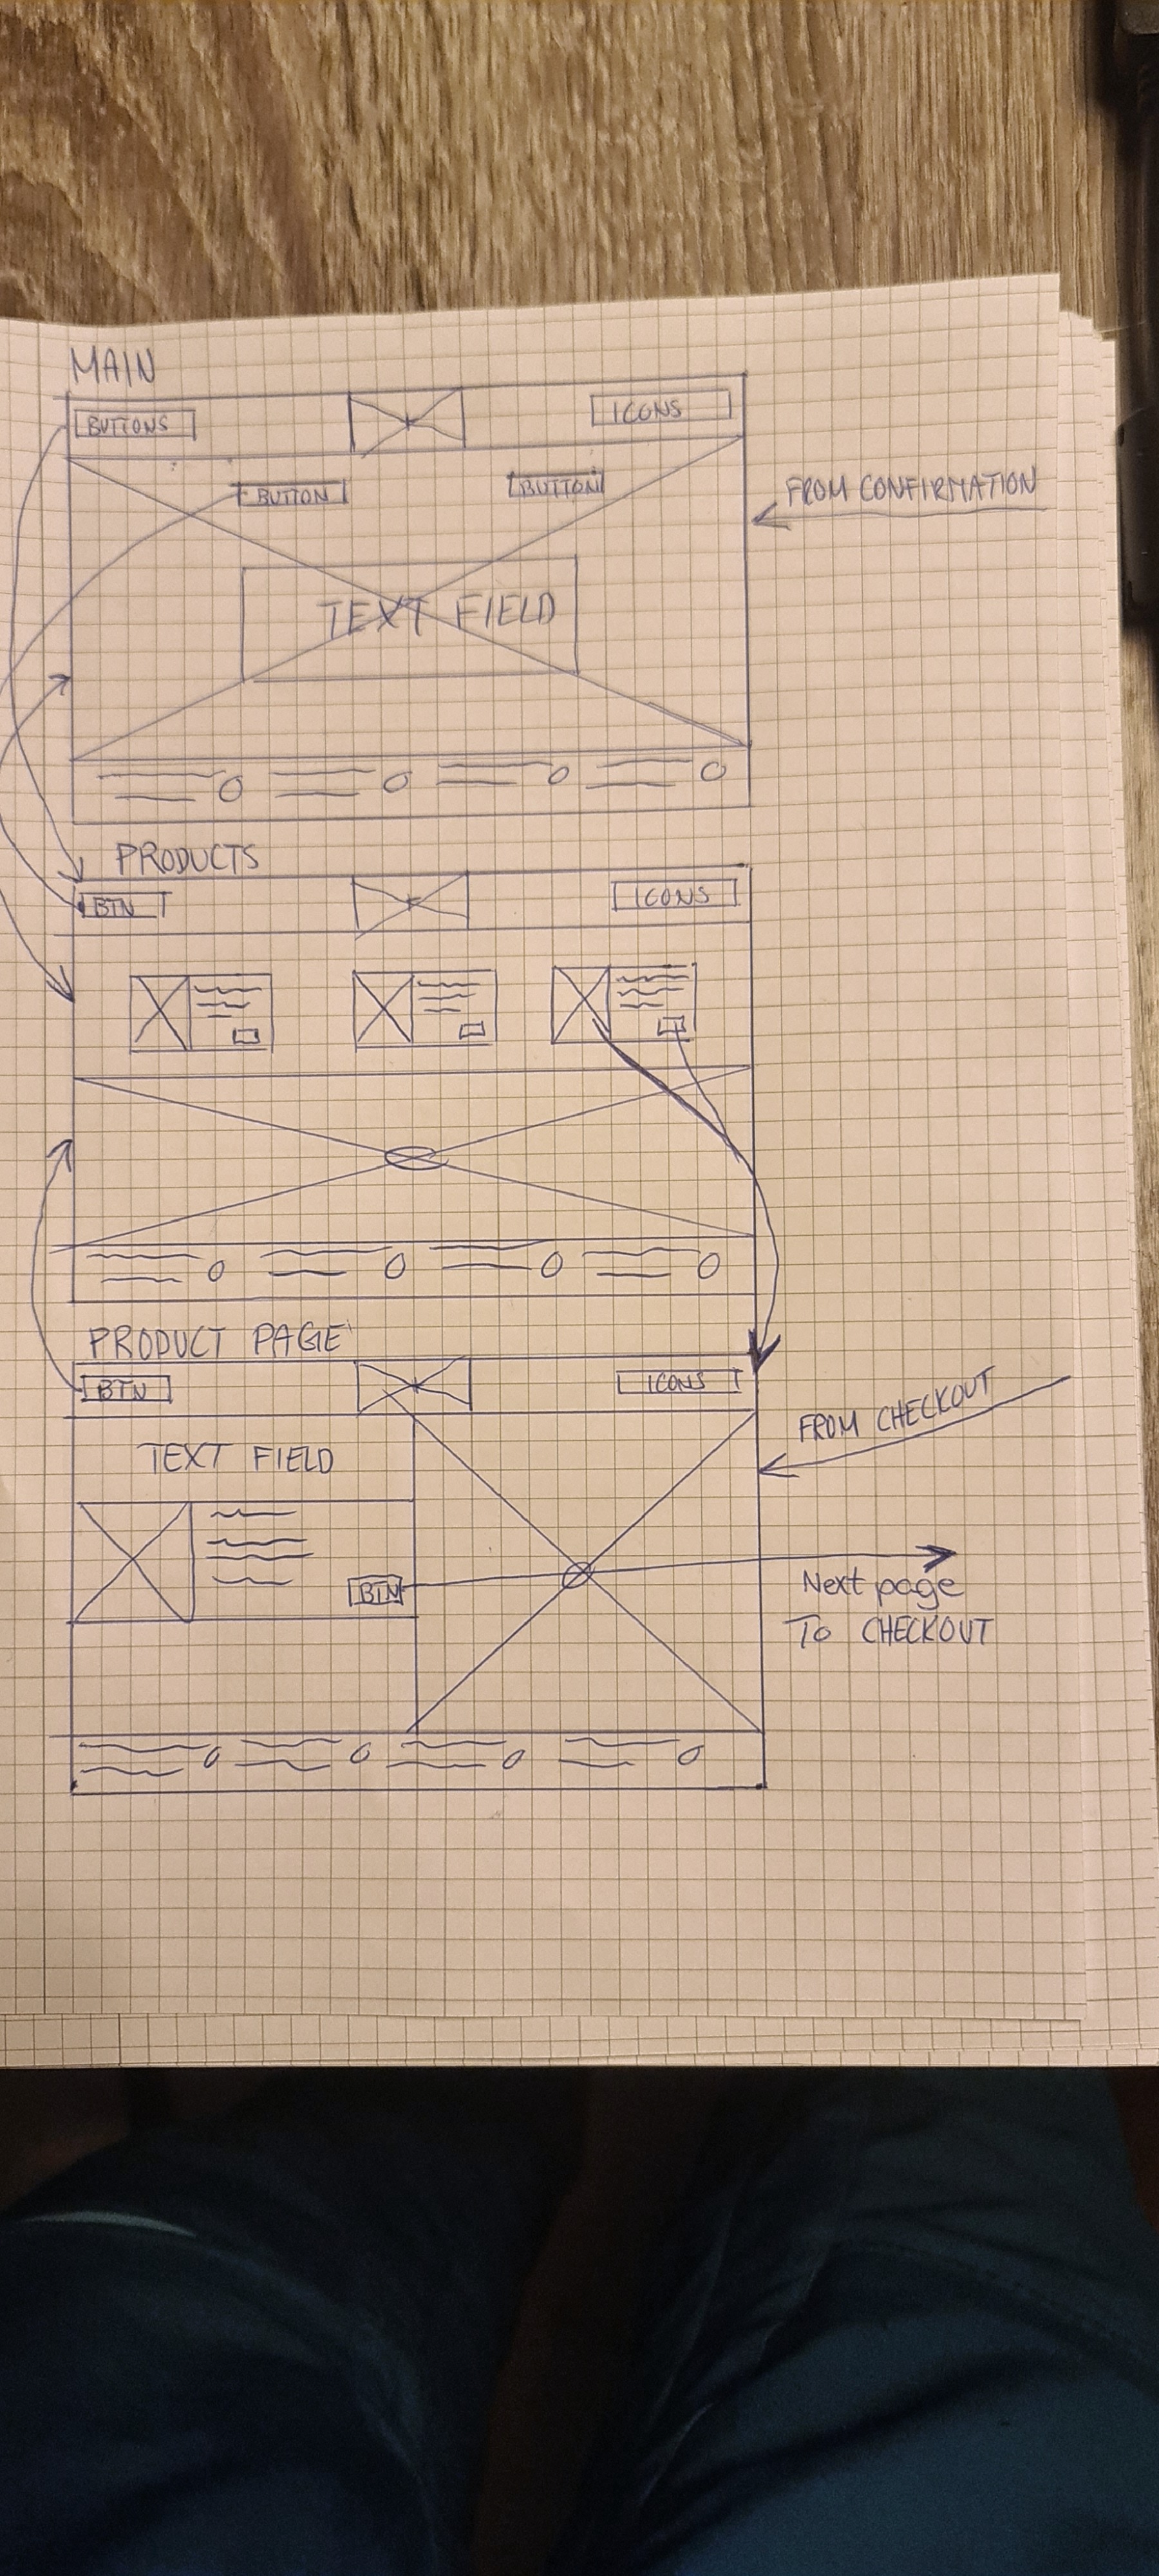 MAIN
BUTTONS
ICONS
BUTTON
BUTTON
FROM CONFIRMATION
TEXT FIELD
PRODUCTS
BTN
ICONS
PRODUCT PAGE
BTN
ICONS
FROM CHECKOUT
TEXT FIELD
BTN
Next page
To CHECKOUT